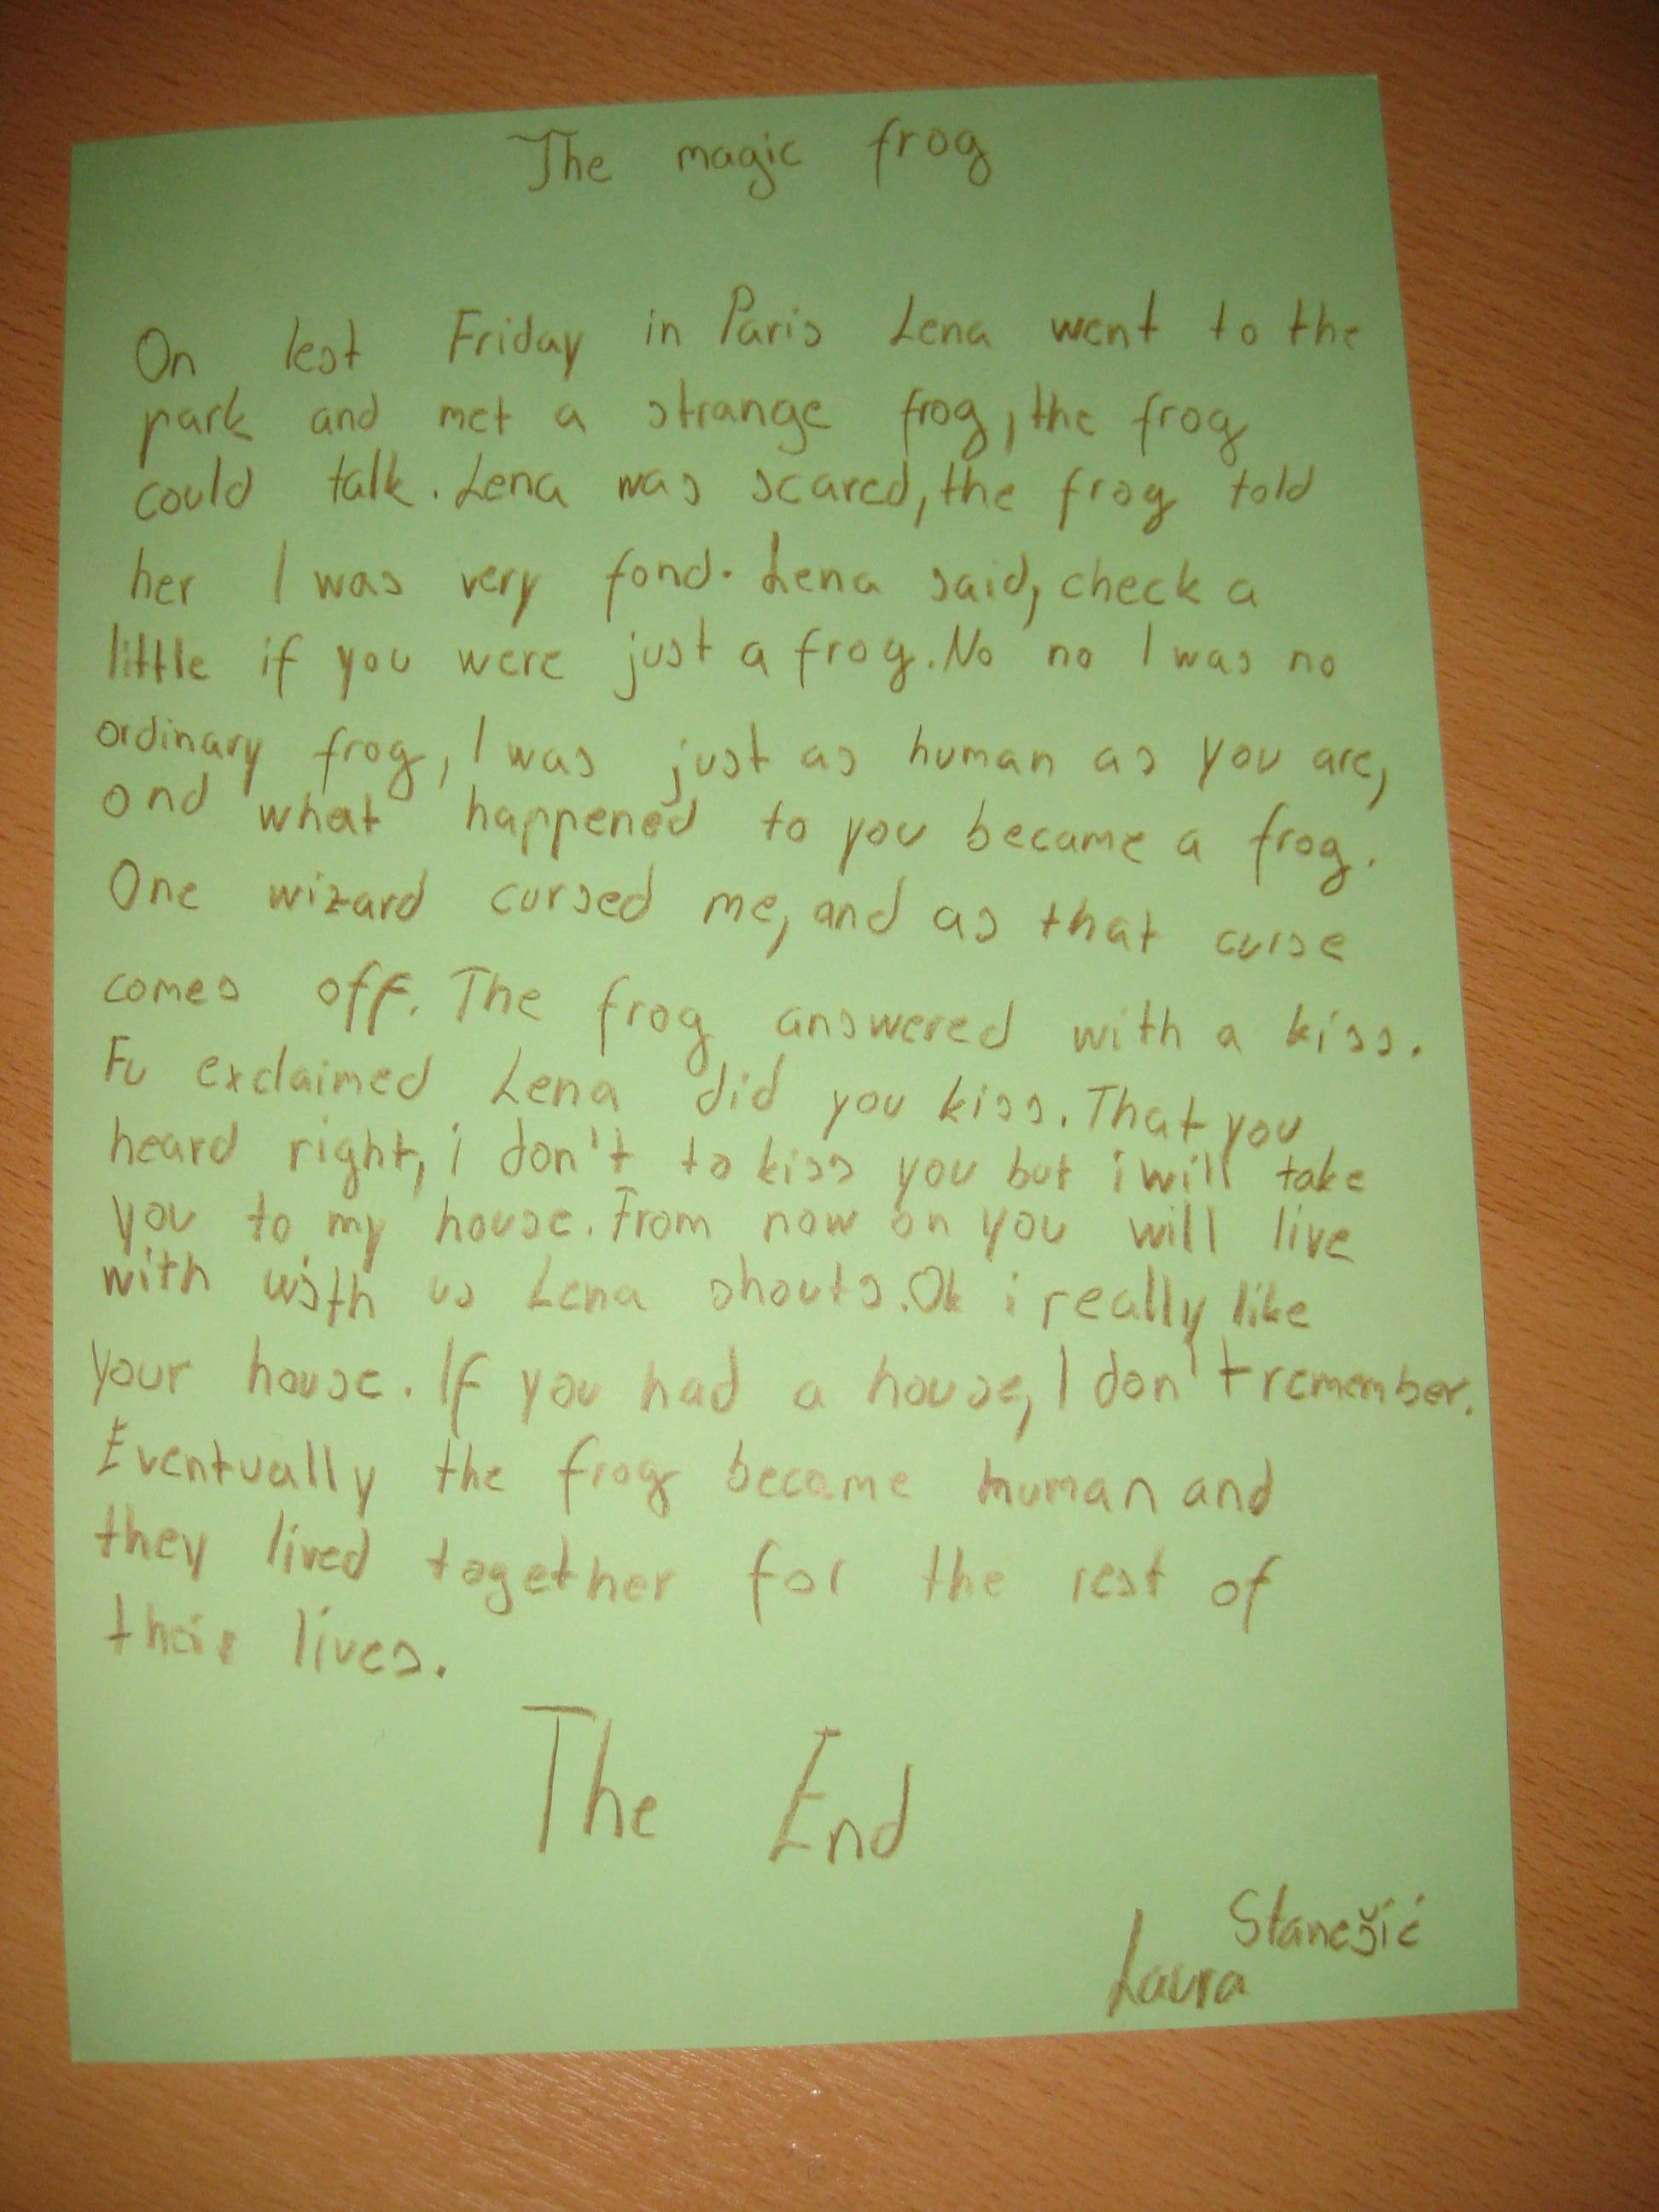 The magic frog
On lest Friday in Paris Lena went to the
park and met a strange frog, the frog
could talk. Lena was scared, the frog told
her I was very fond. Lena said, check a
little if you were just a frog. No no I was no
ordinary frog, I was just as human as you are,
ond what happened to you became a frog.
One wizard cursed me, and as that curse
comes off. The frog answered with a kiss.
Fu exclaimed Lena did you kiss. That you
heard right, i don't to kiss you but i will take
you to my house. From now on you will live
with with us Lena shouts. Ok i really like
your house. If you had a house, I don't remember.
Eventually the frog become human and
they lived together for the rest of
their lives.
The End
Stanešić
Laura